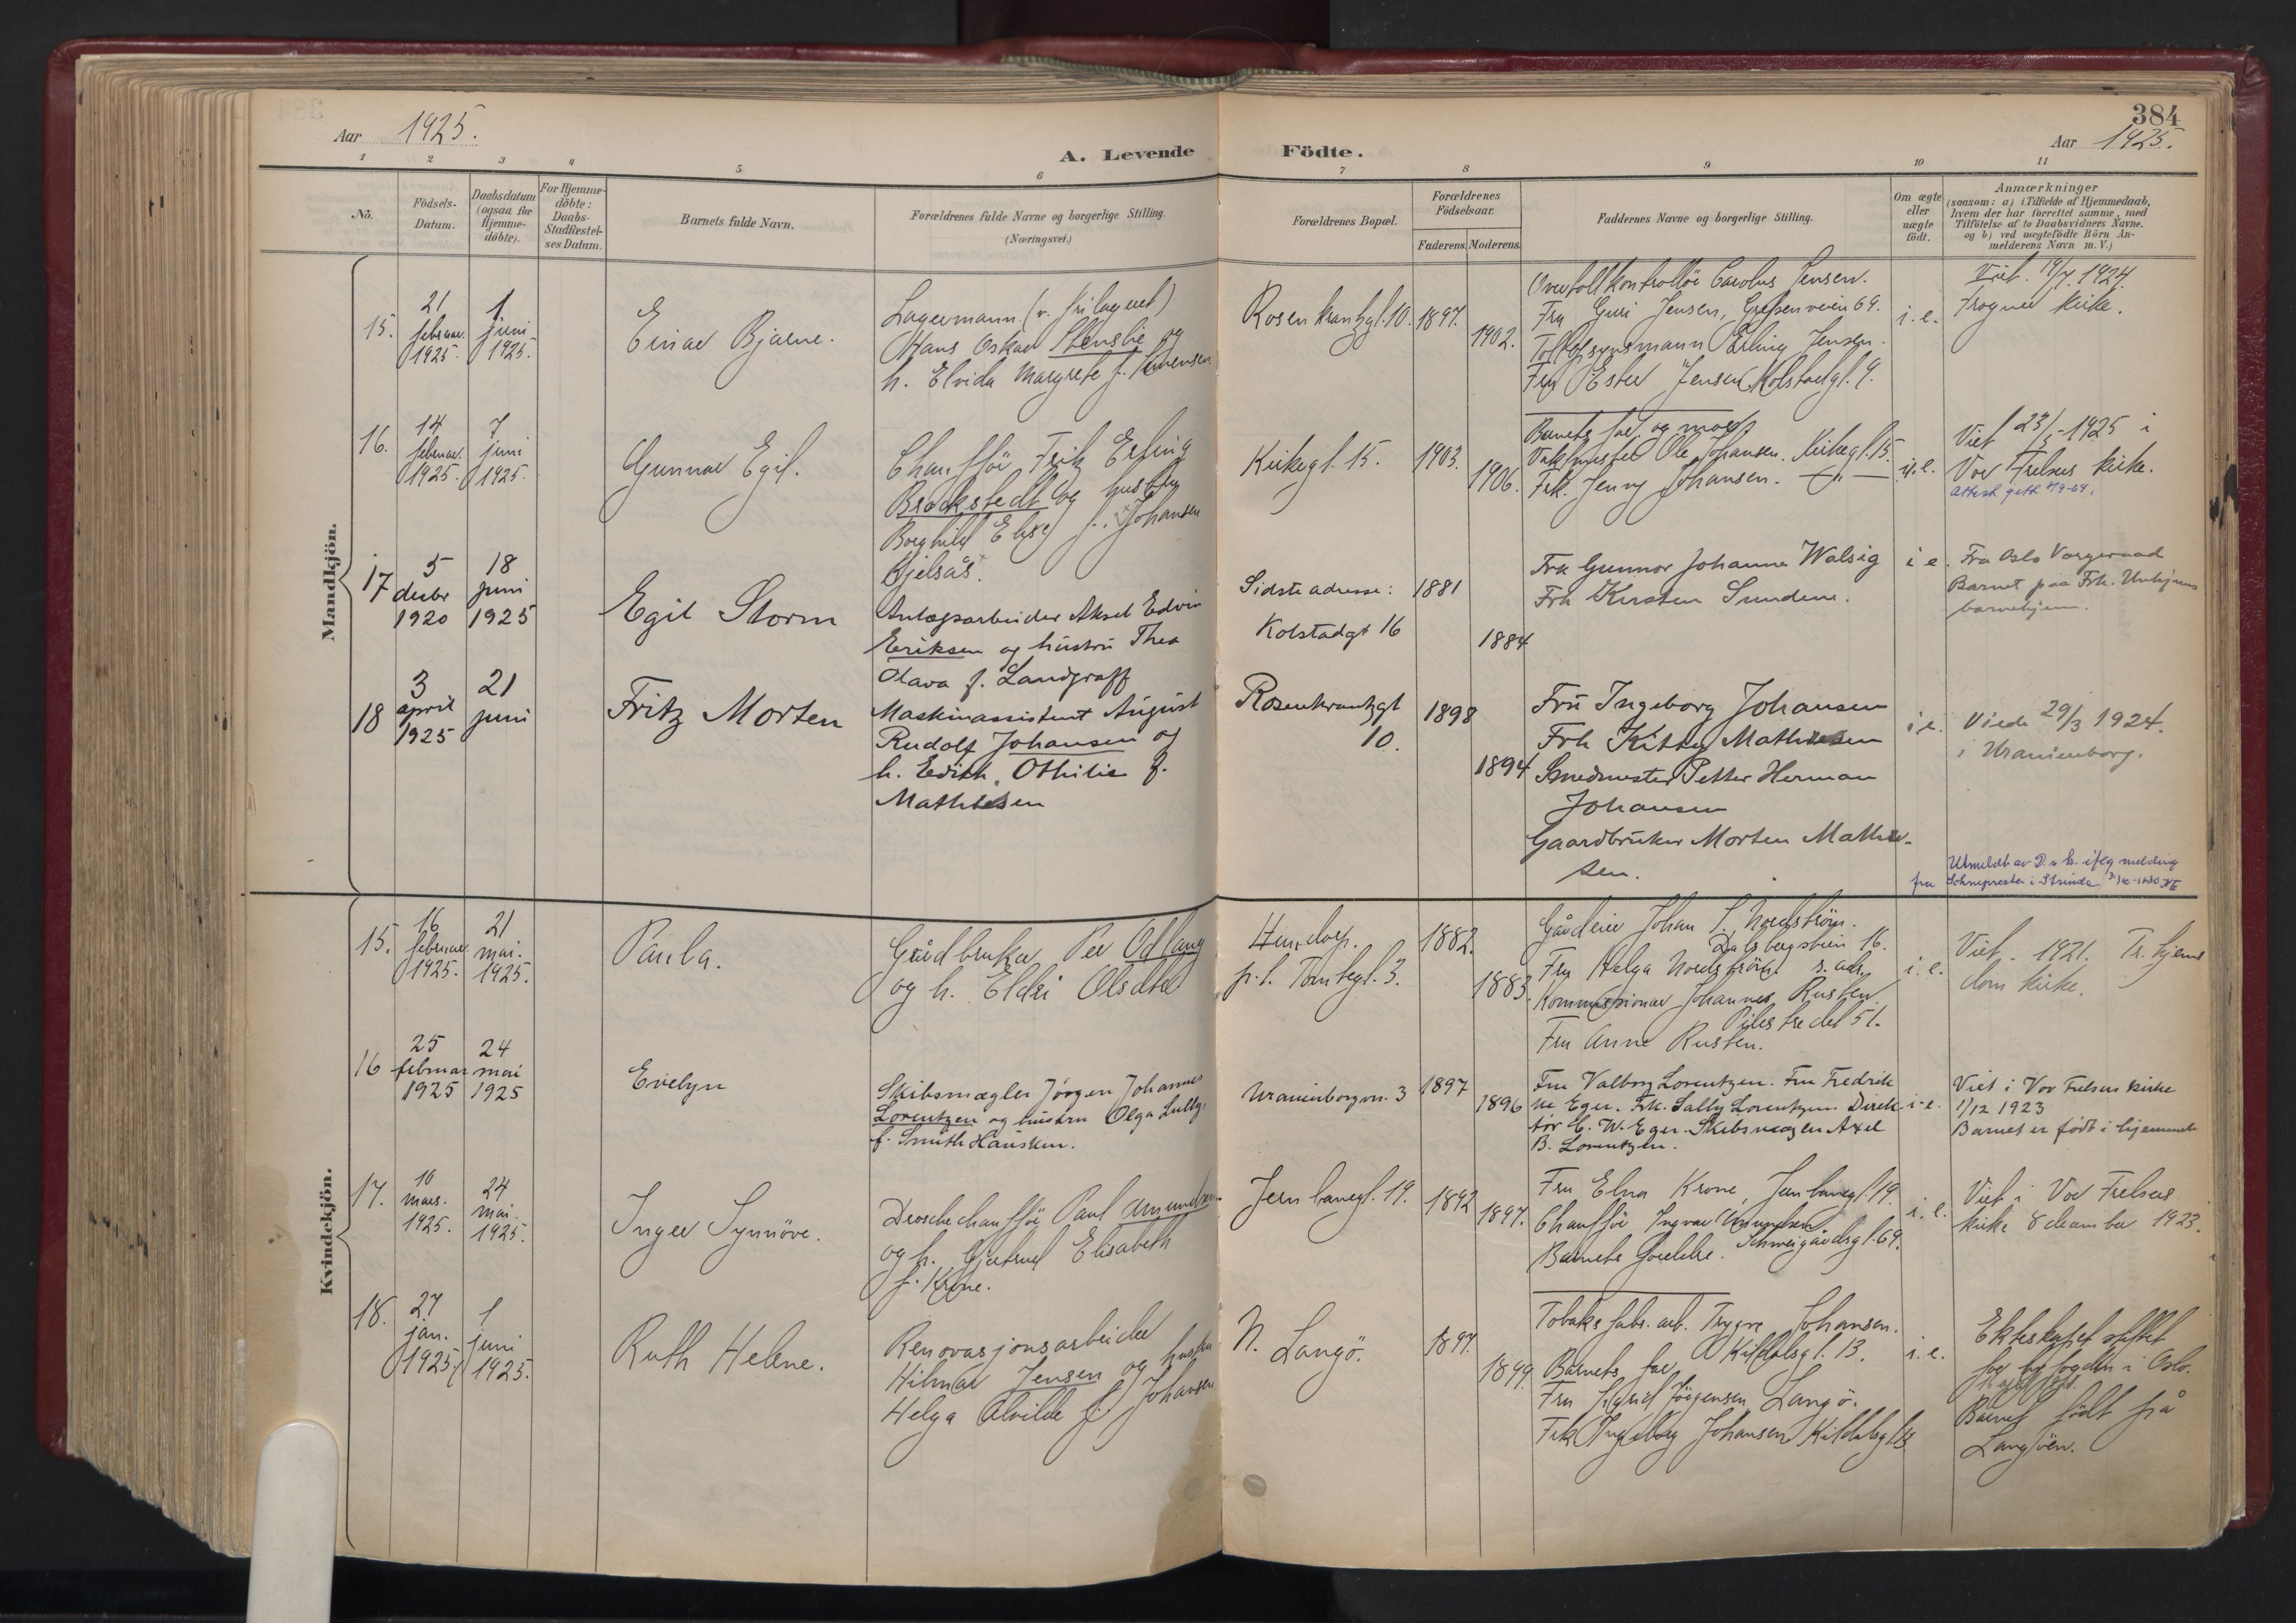 384
Aar 1925.
A. Levende Födte.
Aar 1925.
1 2 3 4 5 6 7 8 9 10 11
No.
Födsels-
Datum.
Daabsdatum
(ogsaa for
Hjemme-
döbte).
For Hjemme-
döbte:
Daabs-
Stadfæstel-
ses Datum.
Barnets fulde Navn.
Forældrenes fulde Navne og borgerlige Stilling.
(Næringsvei.)
Forældrenes Bopæl.
Forældrenes
Födselsaar.
Faderens. Moderens.
Faddernes Navne og borgerlige Stilling.
Om ægte
eller
uægte
födt.
Anmærkninger
(saasom: a) i Tilfælde af Hjemmedaab,
hvem der har forrettet samme, med
Tilföielse af to Daabsvidners Navne.
og b) ved uægtefödte Börn An-
melderens Navn m. V.)
Mandkjön.
15.
21
februar
1925.
1
juni
1925.
Einar Bjarne.
Lagermann (v. frilageret)
Hans Oskar Stenslie og
h. Elvida Margrete f.
Rosenkrantzgt. 10.
1897.
1902.
Overtollkontrollör Carolus Jensen.
Fru Guri Jensen, Grefsenveien 69.
Tollopsynsmann Erling Jensen.
Fru Ester Jensen, Kolstadgt. 9.
i. e.
Viet 19/7 1924.
Frogner kirke.
16.
14
februar.
1925.
7
juni
1925.
Gunnar Egil.
Chaufför Fritz Erling
Brockstedt og hustru
Borghild Elise f. Johansen
Kirkegt. 15.
1903.
1906.
Barnets far og mor.
Vaktmester Ole Johansen. Kirkegt. 15.
Frk. Jenny Johansen. — " —
i. e.
Viet 23/5 1925 i
Vor Frelsers kirke.
17
5
decbr
1920
18
juni
1925
Egil Storm
Kjelsås.
Anlægsarbeider Aksel Edvin
Eriksen og hustru Thea
Olava f. Landgraff
Sidste adresse:
Kolstadgt 16
1881
1884
Frk Gunnor Johanne Walsig
Frk Kirsten Sundene.
i e.
Fra Oslo Vergeraad
Barnet paa Frk. Unhjems
barnehjem.
18
3
april
1925
21
juni
Fritz Morten
Maskinassistent August
Rudolf Johansen og
h. Edith Othilie f.
Mathiesen
Rosenkrantzgt
10.
1898
1894
Fru Ingeborg Johansen
Frk Kitty Mathiesen
Smedmester Petter Herman
Johansen
Gaardbruker Morten Mathie-
sen.
i e.
Viede 29/3 1924.
i Uranienborg.
Utmeldt av D. n. k. iflg melding
fra Soknepresten i Strinda
Kvindekjön.
15.
16
februar.
1925.
21
mai.
1925.
Paula.
Gårdbruker Per Odlang
og h. Eldri Olsdtr
p. t. Tomtegt. 3.
1882.
1883.
Gårdeier Johan S. Nordström.
Dalsbergstien 16.
Fru Helga Nordström s. adr.
Kommisjonær Johannes Rusten.
Pilestredet 51.
Fru Anne Rusten.
i. e.
Viet 1921. Tr. hjems
dom kirke.
16
25
februar
1925
24
mai
1925
Evelyn
Skibsmægler Jörgen Johannes
Lorentzen og hustru Olga Lully
f. Smith Hausken.
Uranienborgvn. 3
1897
1896
Fru Valborg Lorentzen. Fru Fredrik
ke Eger. Frk. Sally Lorentzen. Direk
tör C. W. Eger. Skibsmægler Axel
B. Lorentzen.
i. e.
Viet i Vor Frelsers kirke
1/12 1923
Barnet er födt i hjemmet
17.
10
mars.
1925.
24
mai.
1925.
Inger Synnöve.
Droschechaufför Paul Amundsen
og h. Gjertrud Elisabeth
f. Krone.
Jernbanegt. 19.
1892
1897.
Fru Elna Krone, Jernbanegt. 19
Chaufför Ingvar Amundsen
Schweigaardsgt. 69.
Barnets foreldre.
i. e.
Viet i Vor Frelsers
kirke 8 desember 1923.
18.
27
jan.
1925.
1
juni
1925.
Ruth Helene.
Renovasjonsarbeider
Hilmar Jensen og hustru
Helga Alvilde f. Johansen
N. Langö.
1897.
1899.
Tobaksfabr. arb. Trygve Johansen.
Kildalsgt. 13.
Barnets far
Fru Sigrid Jörgensen Langö.
Frk Ingeborg Johansen Kildalsgt 13
i. e.
Ekteskapet stiftet
for byfogden i Oslo.
Barnet födt på
Langöen.